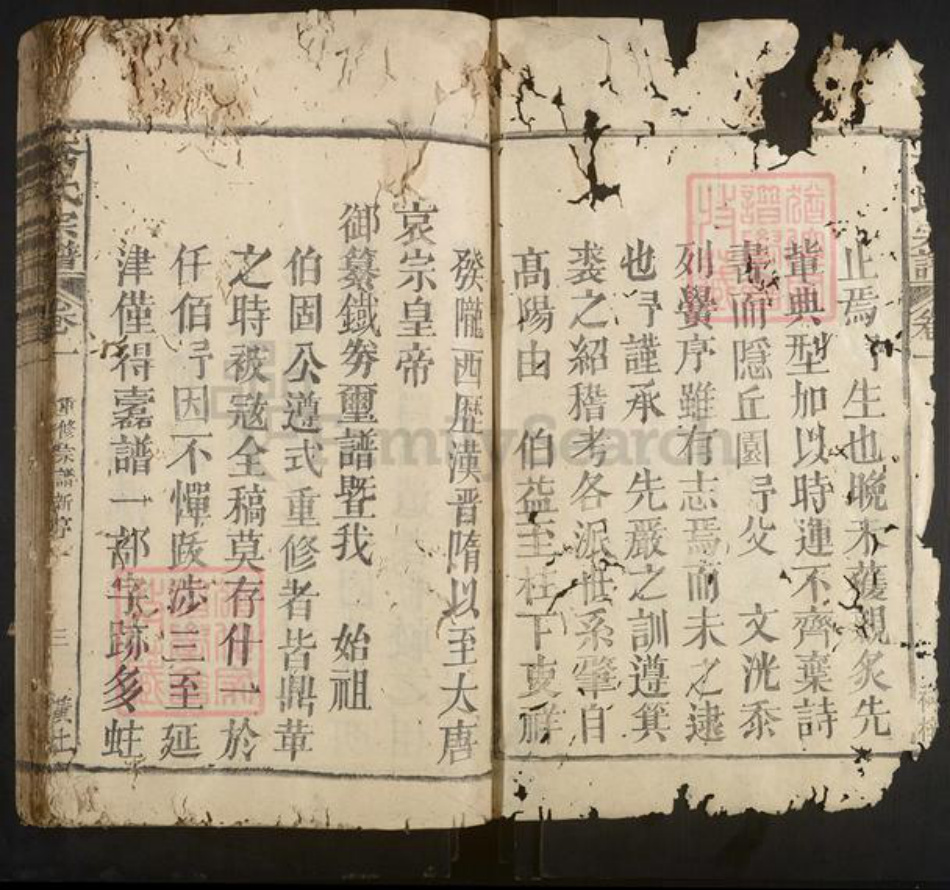 止焉予生也晚未獲親炙先
輩典型加以時運不齊棄詩
書而隱丘園予父 文洸忝
列黌序雖有志焉而未之逮
也予謹承 先嚴之訓遵箕
裘之紹稽考各派世系肇自
高陽由 伯益至柱下吏祥
發隴西歷漢晋隋以至大唐
哀宗皇帝
御纂鐵劵璽譜暨我 始祖
伯固公遵式重修者皆鼎革
之時被冦全稿莫存什一於
仟佰予因不憚跋涉三至延
津僅得嘉譜一部字跡多蛀
氏宗譜 卷一 重修宗譜新序 三
FamilySearch